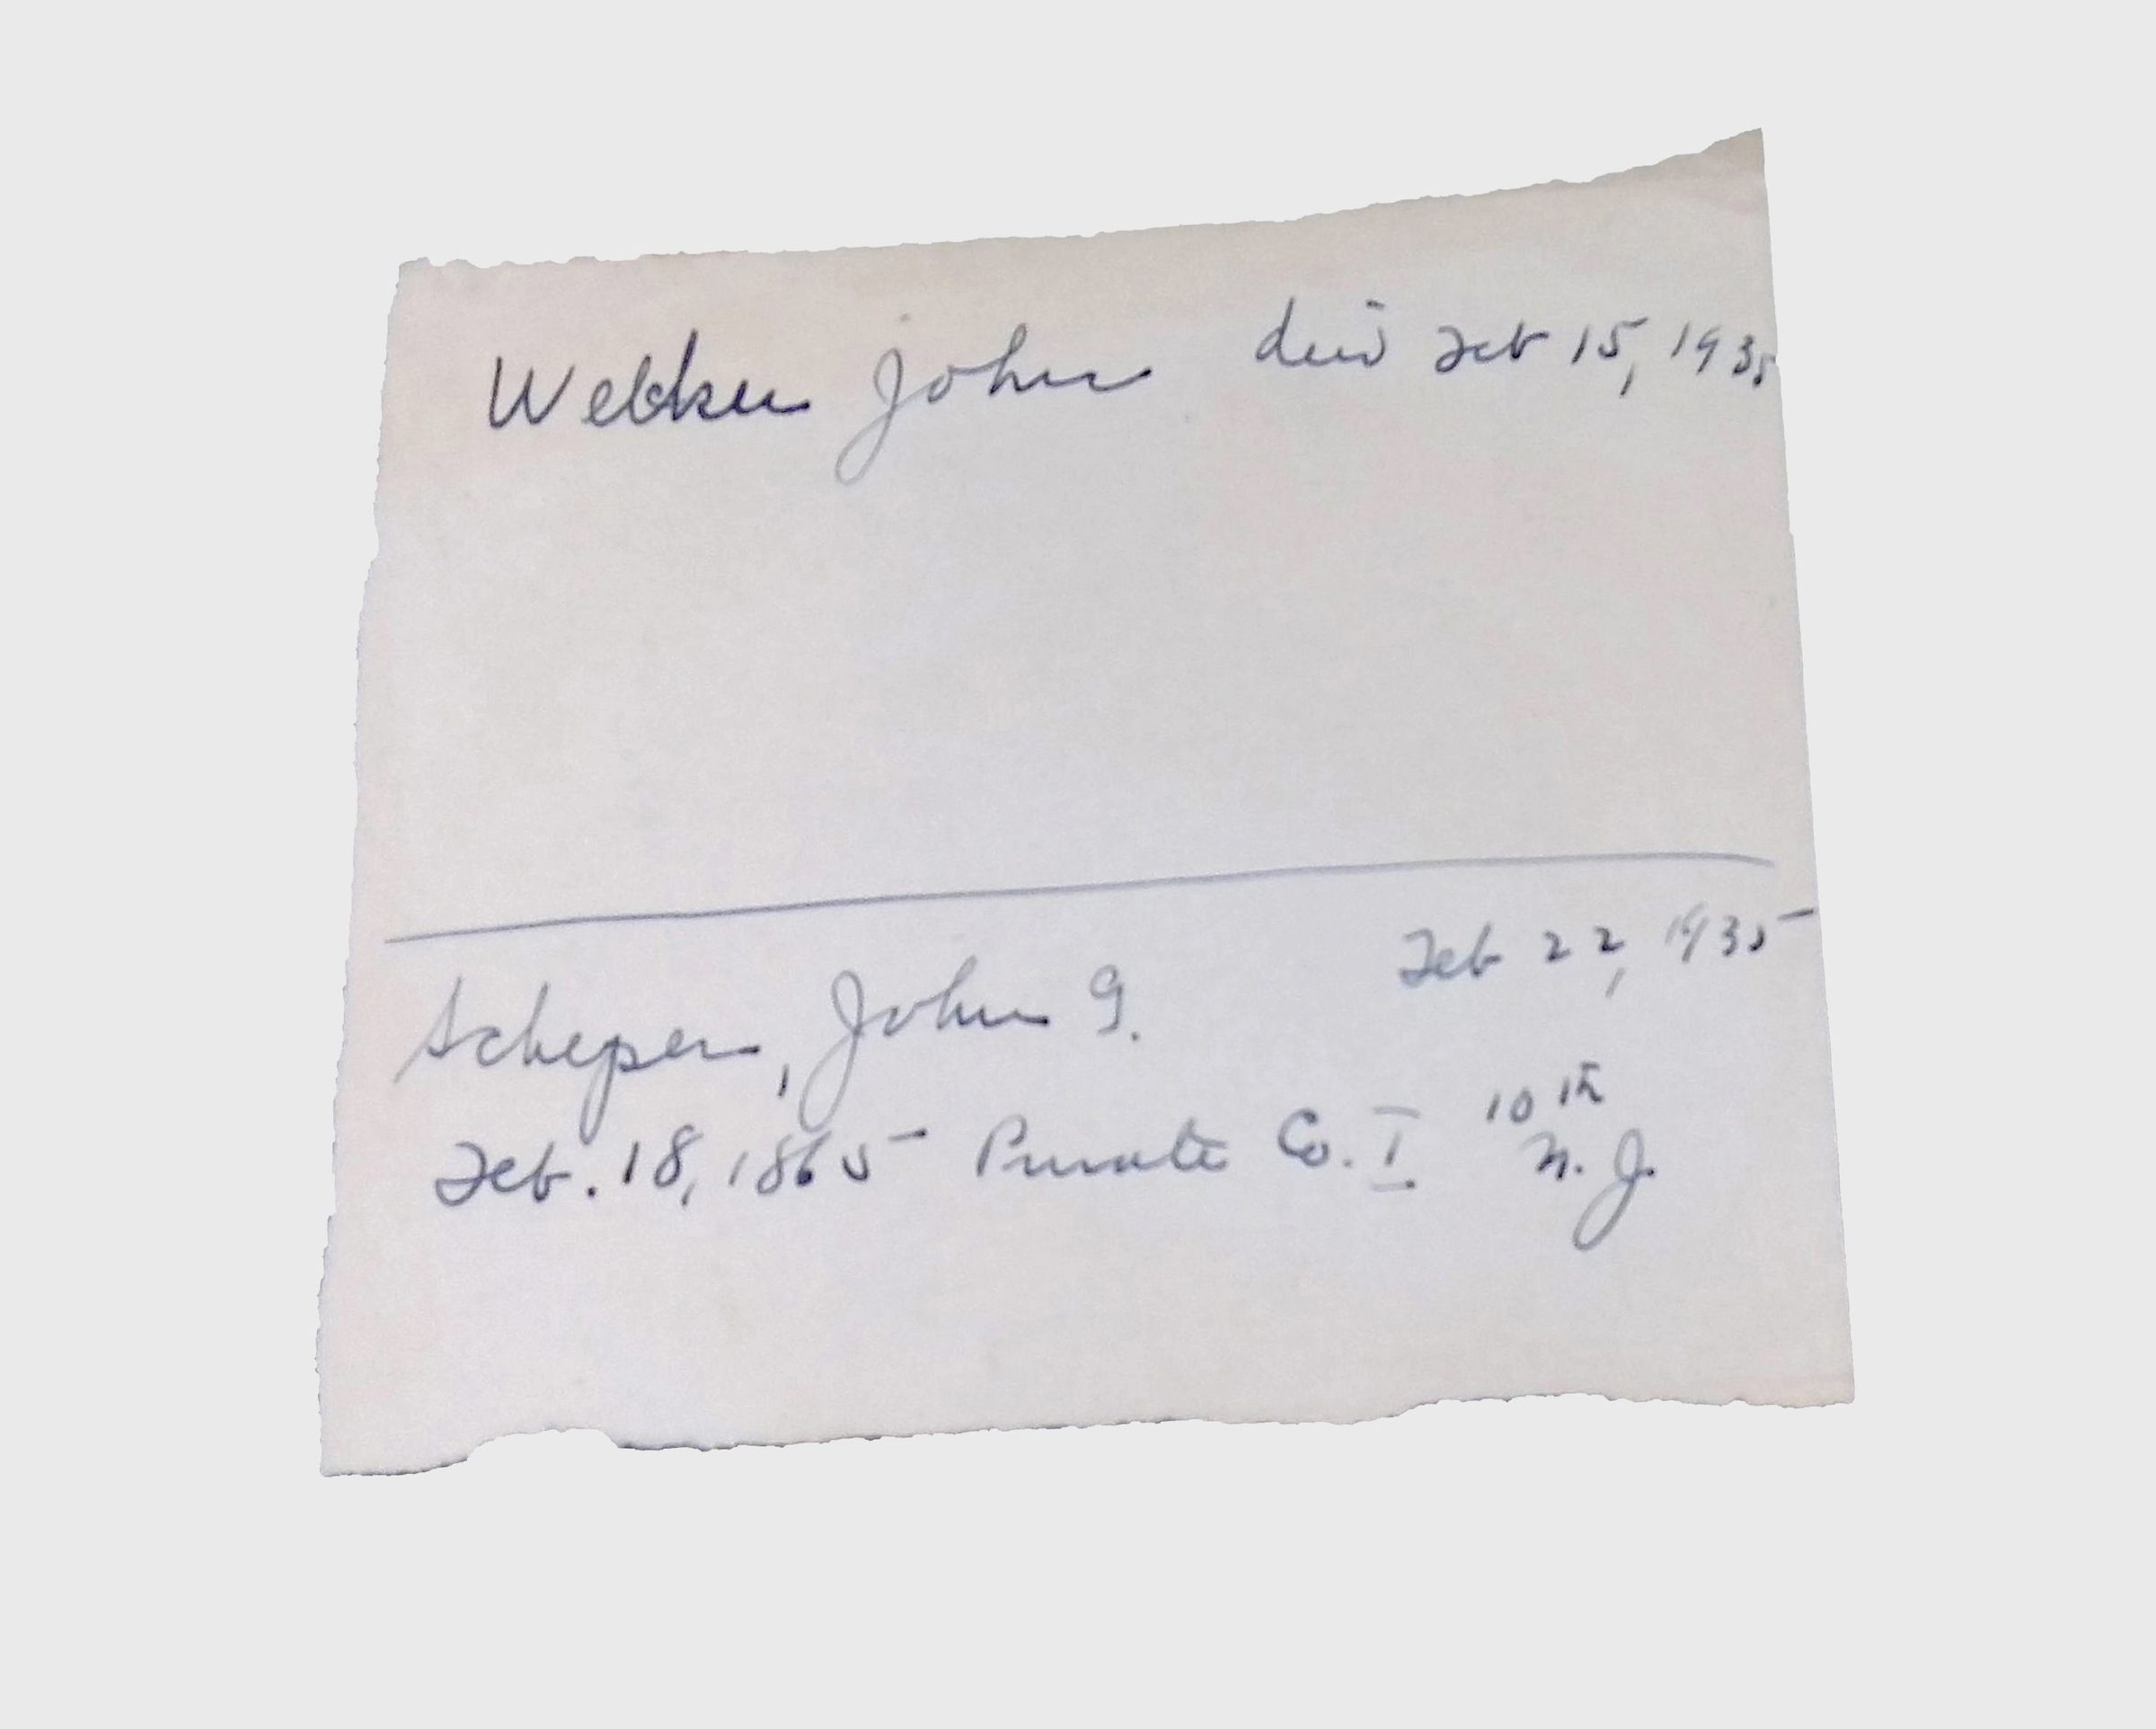 Webker John died Feb 15, 1935
Feb 22, 1935
Scheper, John G.
10th
Feb. 18, 1865 Private Co. I N. J.